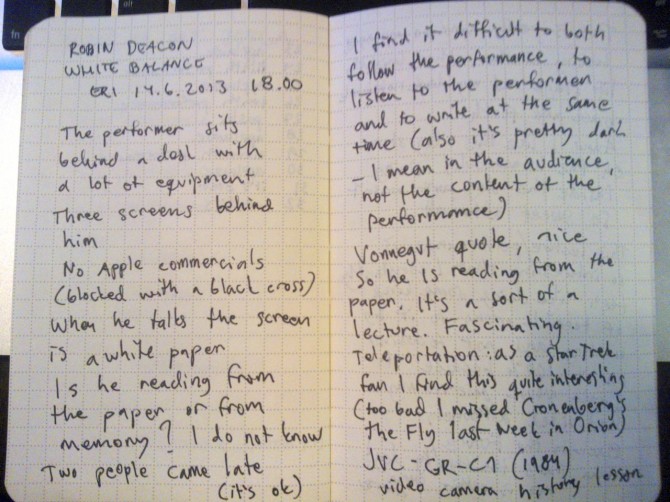 ROBIN DEACON
WHITE BALANCE
FRI 14.6.2013 18.00
The performer sits
behind a desk with
a lot of equipment
Three screens behind
him
No Apple commercials
(blocked with a black cross)
When he talks the screen
is a white paper
Is he reading from
the paper or from
memory? I do not know
Two people came late
(it's ok)
I find it difficult to both
follow the performance, to
listen to the performer
and to write at the same
time (also it's pretty dark
- I mean in the audience,
not the content of the
performance)
Vonnegut quote, nice
So he is reading from the
paper. It's a sort of a
lecture. Fascinating.
Teleportation: as a Star Trek
fan I find this quite interesting
(too bad I missed Cronenberg's
the Fly last week in Orion)
JVC-GR-C1 (1984)
video camera history lesson
fn
alt